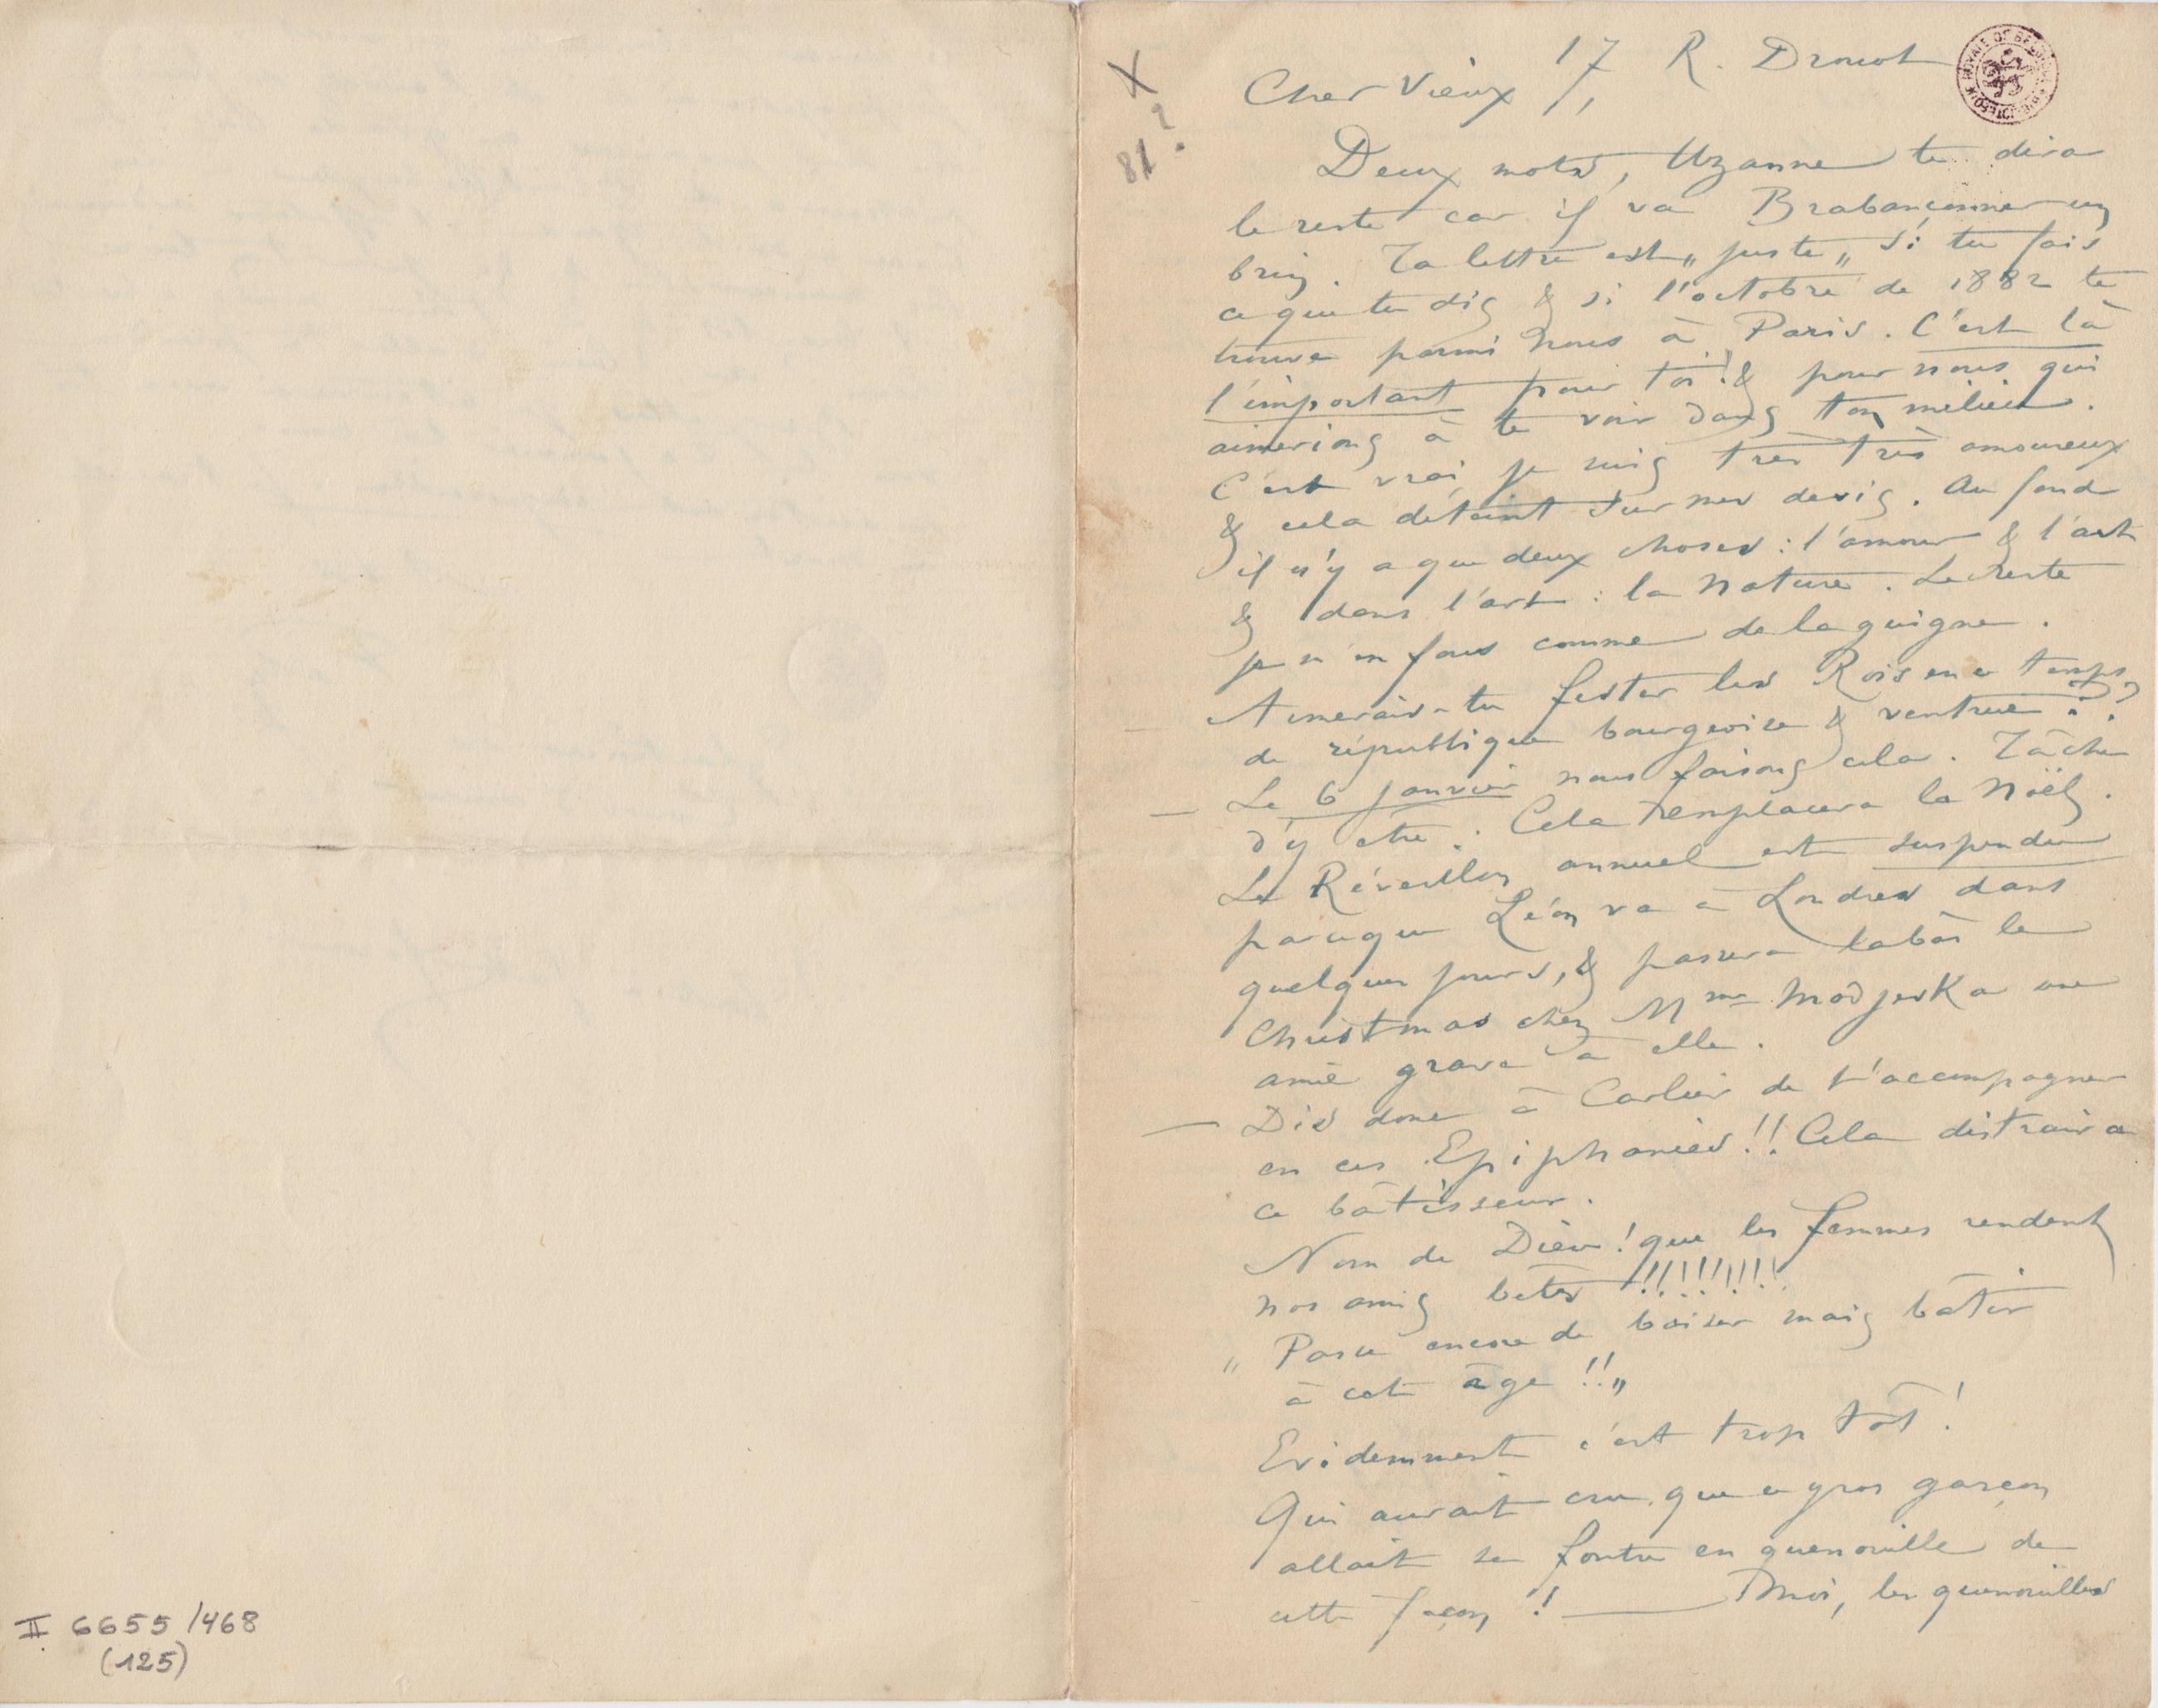 17 R. Drouot
Cher Vieux,
X
?
81
BIBLIOTHÈQUE ROYALE DE BELGIQUE
Deux mots, Uzanne te dira
le reste car il va Brabançonner un
brin. Ta lettre est „juste„ si tu fais
ce que tu dis & si l'octobre de 1882 te
trouve parmi nous à Paris. C'est là
l'important pour toi! & pour nous qui
aimerions à te voir dans ton milieu.
C'est vrai je suis très très amoureux
& cela déteint sur mes devis. Au fond
il n'y a que deux choses : l'amour & l'art
& dans l'art : la Nature. Le reste
je m'en fous comme de la guigne.
Aimerais-tu fester les Rois en ce temps
de république bourgeoise & ventrue??
Le 6 janvier nous faisons cela. Tâche
d'y être. Cela remplacera la Noël.
Le Réveillon annuel est suspendu
parceque Léon va à Londres dans
quelques jours, & passera labàs le
Christmas chez Mme Modjeska une
amie grave à elle.
Dis donc à Carlier de t'accompagner
en ces Epiphanies!! Cela distraira
ce bâtisseur.
Nom de Dieu! que les femmes rendent
nos amis bêtes !!!!!!!!!
„ Passe encore de baiser mais bâtir
à cet âge !!„
Evidemment c'est trop tôt!
Qui aurait cru que ce gros garçon
allait se foutre en quenouille de
cette façon ! — Moi, les quenouilles
II 6655/468
(125)